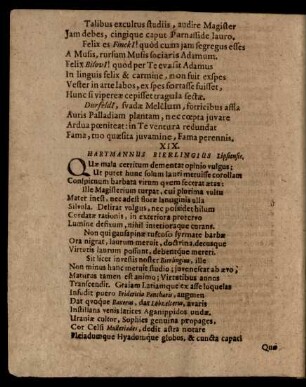 Talibus excultus studiis, audire Magister
Jam debes, cingique caput Parnasside lauro,
Felix es Finckî! quòd cum jam segregus esses
A Musis, rursum Musis sociaris Adamum.
Felix quod per Te evasit Adamus
In linguis felix & carmine, non fuit exspes
Vester in arte labos, ex spes fortasse fuisset,
Hunc si vipereæ cepisset tragula sectæ.
Dorfeldî, suadæ forticibus assla
Auris Palladiam plantam, nec cœpta juvare
Ardua pœniteat: in Te ventura redundat
Fama, tuo quæsita juvamine, Fama perennis.
XIX.
HARTMANNUS BIERLINGIUS Lipsensis.
Quæ mala cerritum dementat opinio vulgus;
Ut putet hunc solum lauri meruisse corollam
Conspicuum barba virum qvem fecerat ætas:
Ille Magisterium turpat, cui plurima vultu
Mater inest, nec adest lanuginis ulla
Silvola. Delirat vulgus, nec possidet hilum
Cordatæ rationis, in exteriora protervo
Lumine defixum, nihil interiorque curant.
Non qui gausapinæ rufcosis fyrmate barbæ
Ora nigrat, laurum meruit, doctrina, decusque
Virtutis laurum possunt, debentque mereri.
Sit licet in resiis noster ille
Non minus hanc meruit studio; juvenescat ab ævo;
Maturus tamen est animo; Virtutibus annos
Transcendit. Grajam Latiamque ex asse loquelas
Infudit puero Fridericus augumen
Dat qvoque avaris
Instituens venis latices Aganippidos undæ.
Uraniæ cultor, Sophies genuina propages,
Cor Celsi dedit astra notare
Pleiadumque Hyadumque globos, & cuncta capaci
Quæ